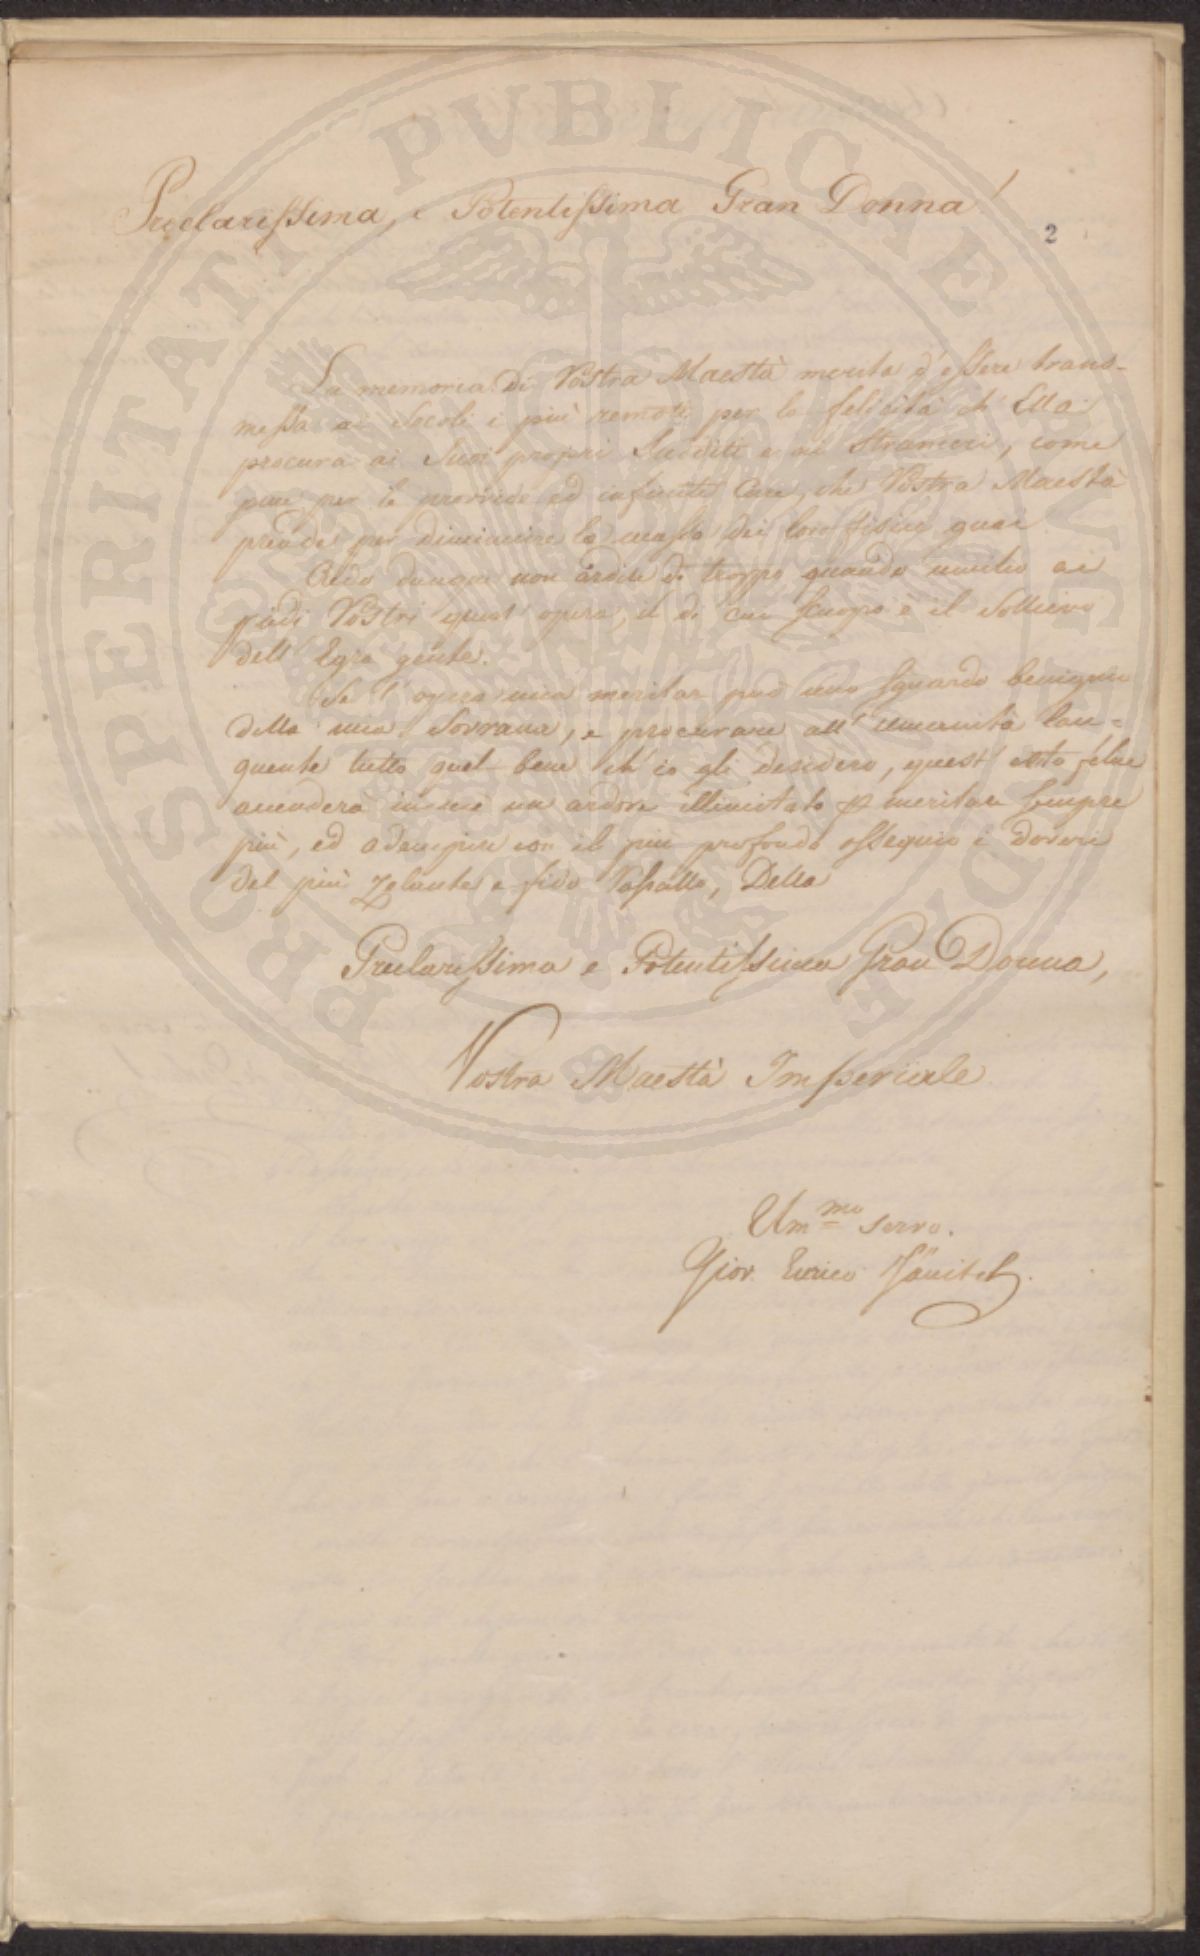 Preclarissima, e Potentissima Gran Donna!
2
La memoria di Vostra Maestà merita d'essere trans-
messa ai Secoli i più remoti per la felicità ch' Ella
procura ai Suoi proprj Sudditi e ai Stranieri, come
pure per le provvide ed infinite Cure, che Vostra Maestà
prende per diminuire la massa dei loro fisici guai
Credo dunque non ardire di troppo quando umilio ai
piedi Vostri quest' opera, il di cui scuopo è il Sollievo
dell' Egra gente.
Se l' opera mia meritar può uno sguardo benigno
della mia Sovrana, e procurare all' umanità lan-
guente tutto quel bene ch' io gli desidero, quest' esito felice
accenderà in me un ardore illimitato p meritar sempre
più, ed adempire con il più profondo ossequio i doveri
del più zelante e fido Vassallo, Della
Preclarissima e Potentissima Gran Donna,
Vostra Maestà Imperiale
Um.mo servo.
Giov. Enrico
PROSPERITATI PVBLICAE